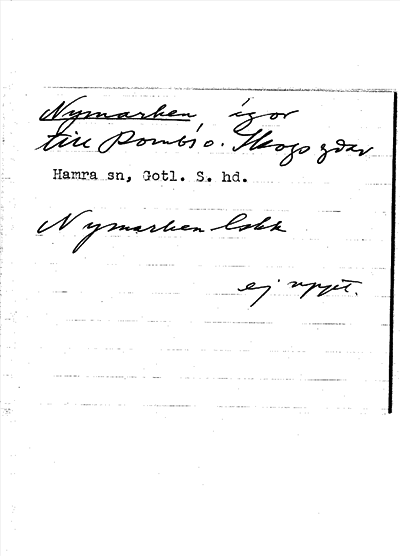 Nymarken, ägor
till Pombs o. Skogs gdar
Hamra sn, Gotl. S. hd.
Nymarken lokk
ej uppt.